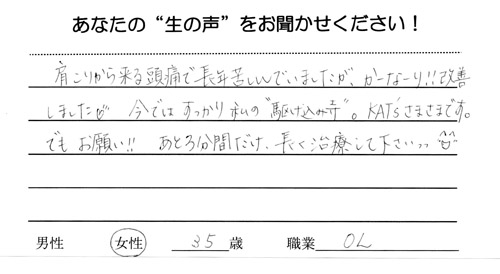 あなたの“生の声”をお聞かせください！
肩こりから来る頭痛で長年苦しんでいましたが、かーなーり!!改善
しました 今ではすっかり私の“駆け込み寺”。KAT'sさまさまです。
でもお願い!! あと3分間だけ、長く治療して下さいっっ
男性 女性 35歳 職業 OL